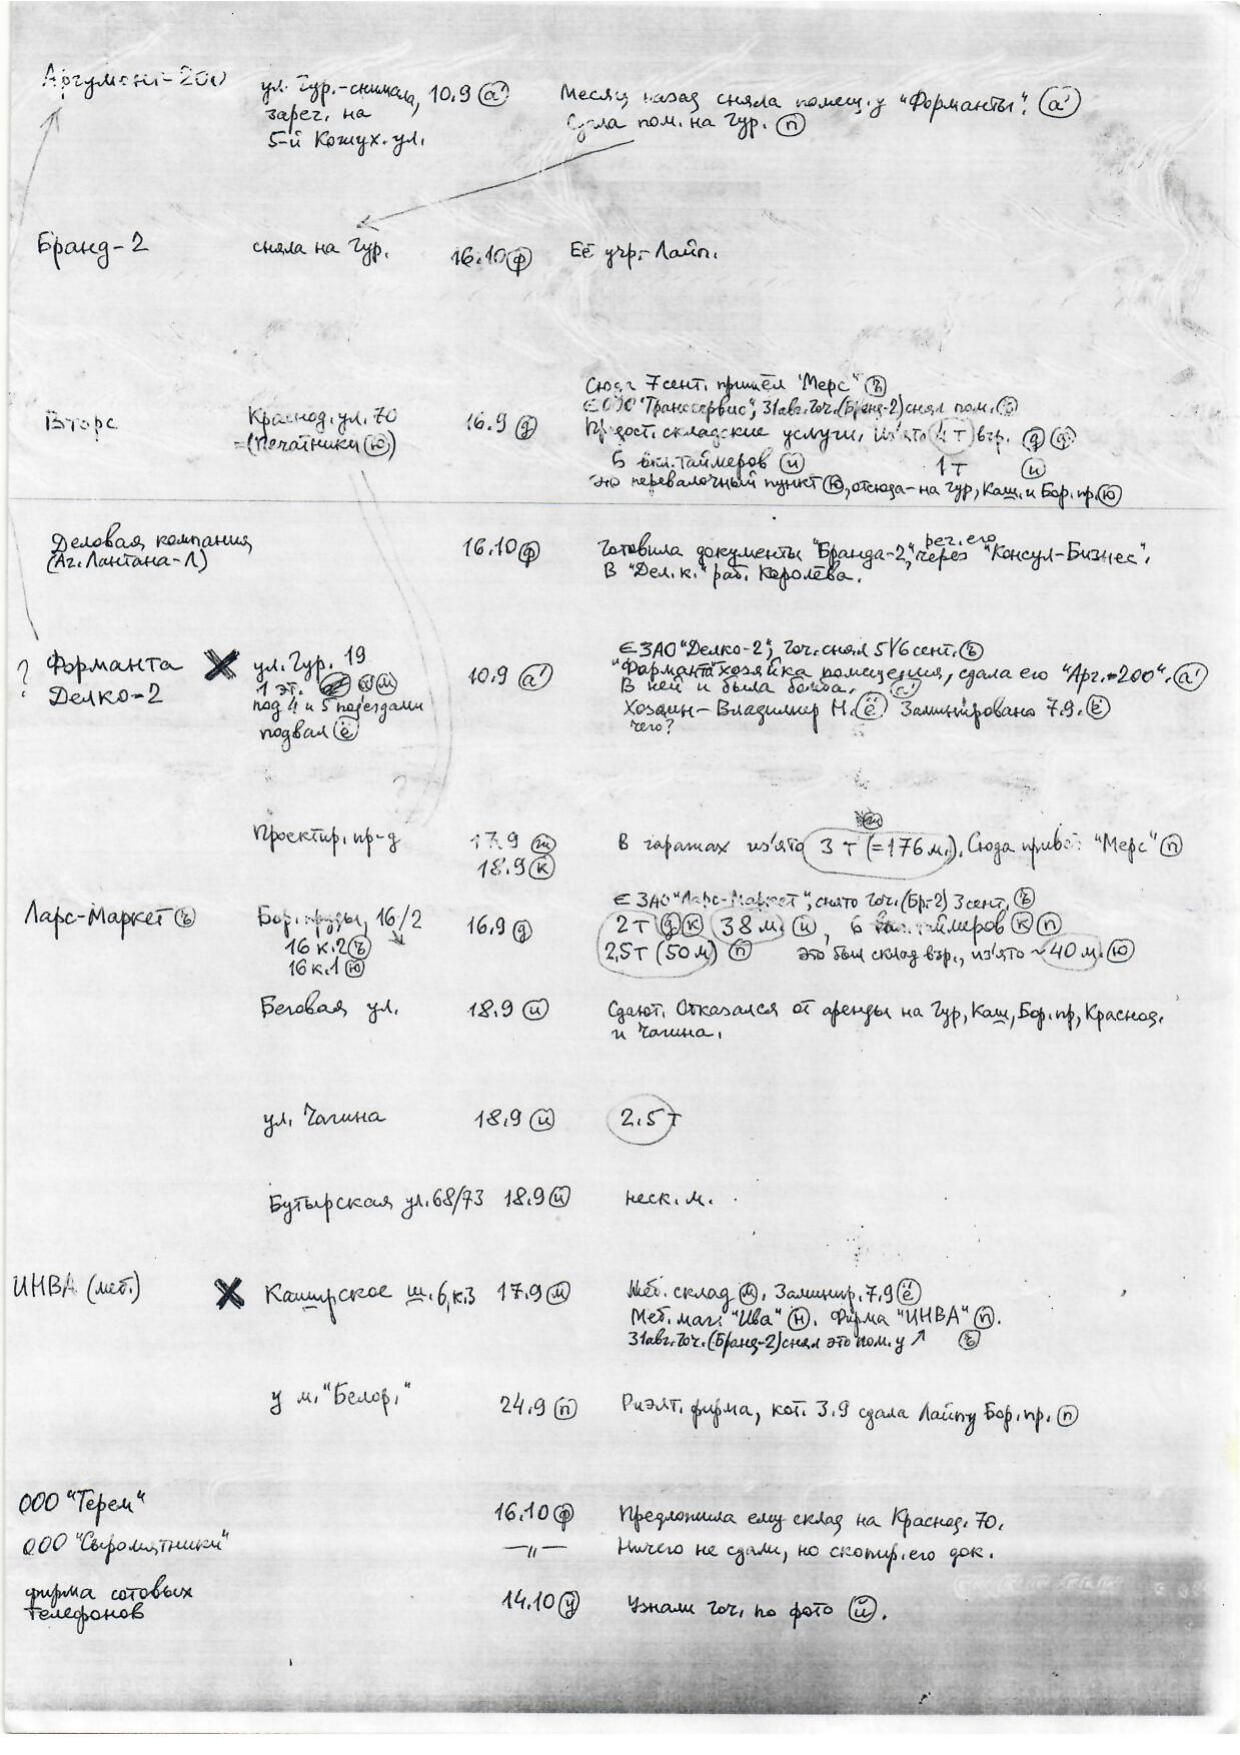 Аргумент-200
ул. Гур.-снимала, 10.9 (а')
зарег. на
5-й Кожух. ул.
Месяц назад сняла помещ. у "Форманты". (а')
Сдала пом. на Гур. (п)
Бранд-2 сняла на Гур. 16.10 (ф) Её учр.- Лайп.
Сюда 7 сент. пришёл "Мерс" (ъ)
Вторс Краснод. ул. 70 16.9 (д) ∈ ООО "Транссервис", 31 авг. Гоч. (Бранд-2) снял пом. (ъ)
=(Печатники (ю)) Предост. складские услуги. Из'ято 4 т взр. (д) (ф)
5 вкл. таймеров (й) 1 т (й)
это перевалочный пункт (ю), отсюда - на Гур, Каш. и Бор. пр. (ю)
Деловая компания 16.10 (ф) Готовила документы "Бранда-2", рег. его через "Консул-Бизнес".
(Аг. Лантана-Л) В "Дел. к." раб. Королёва.
∈ ЗАО "Делко-2", Гоч. снял 5 1/6 сент. (ъ)
? Форманта X ул. Гур. 19 10.9 (а') "Форманта" хозяйка помещения, сдала его "Арг.-200". (а')
Делко-2 1 эт. (к) (м) В ней и была бомба. (с')
под 4 и 5 подъездами Хозяин - Владимир Н. (ё) Заминировано 7.9. (ё)
подвал (ё) чего?
Проектир. пр-д 17.9 (ж) В гаражах из'ято 3 т (=176 м.). Сюда привёз "Мерс" (п)
18.9 (к)
∈ ЗАО "Ларс-Маркет", снято Гоч. (Бр-2) 3 сент. (ъ)
Ларс-Маркет (ъ) Бор. пруды, 16/2 16.9 (д) 2 т (д) (к) 38 м. (й), 6 таймеров (к) (п)
16 к.2 (ъ) 2,5 т (50 м) (п) это был склад взр., из'ято ~ 40 м. (ю)
16 к.1 (ю)
Беговая ул. 18.9 (й) Сдают. Отказался от аренды на Гур, Каш, Бор. пр, Краснод.
и Чагина.
ул. Чагина 18.9 (й) 2.5 т
Бутырская ул. 68/73 18.9 (й) неск. м.
ИНВА (меб.) X Каширское ш. 6, к.3 17.9 (м) Меб. склад (м). Заминир. 7.9 (ё)
Меб. маг. "Ива" (н). Фирма "ИНВА" (п).
31 авг. Гоч. (Бранд-2) снял это пом. у ↗ (ъ)
у м. "Белор." 24.9 (п) Риэлт. фирма, кот. 3.9 сдала Лайпу Бор. пр. (п)
ООО "Терем" 16.10 (ф) Предложила ему склад на Краснод. 70.
ООО "Сыромятники" —"— Ничего не сдали, но скопир. его док.
фирма сотовых 14.10 (у) Узнали Гоч. по фото (й).
телефонов